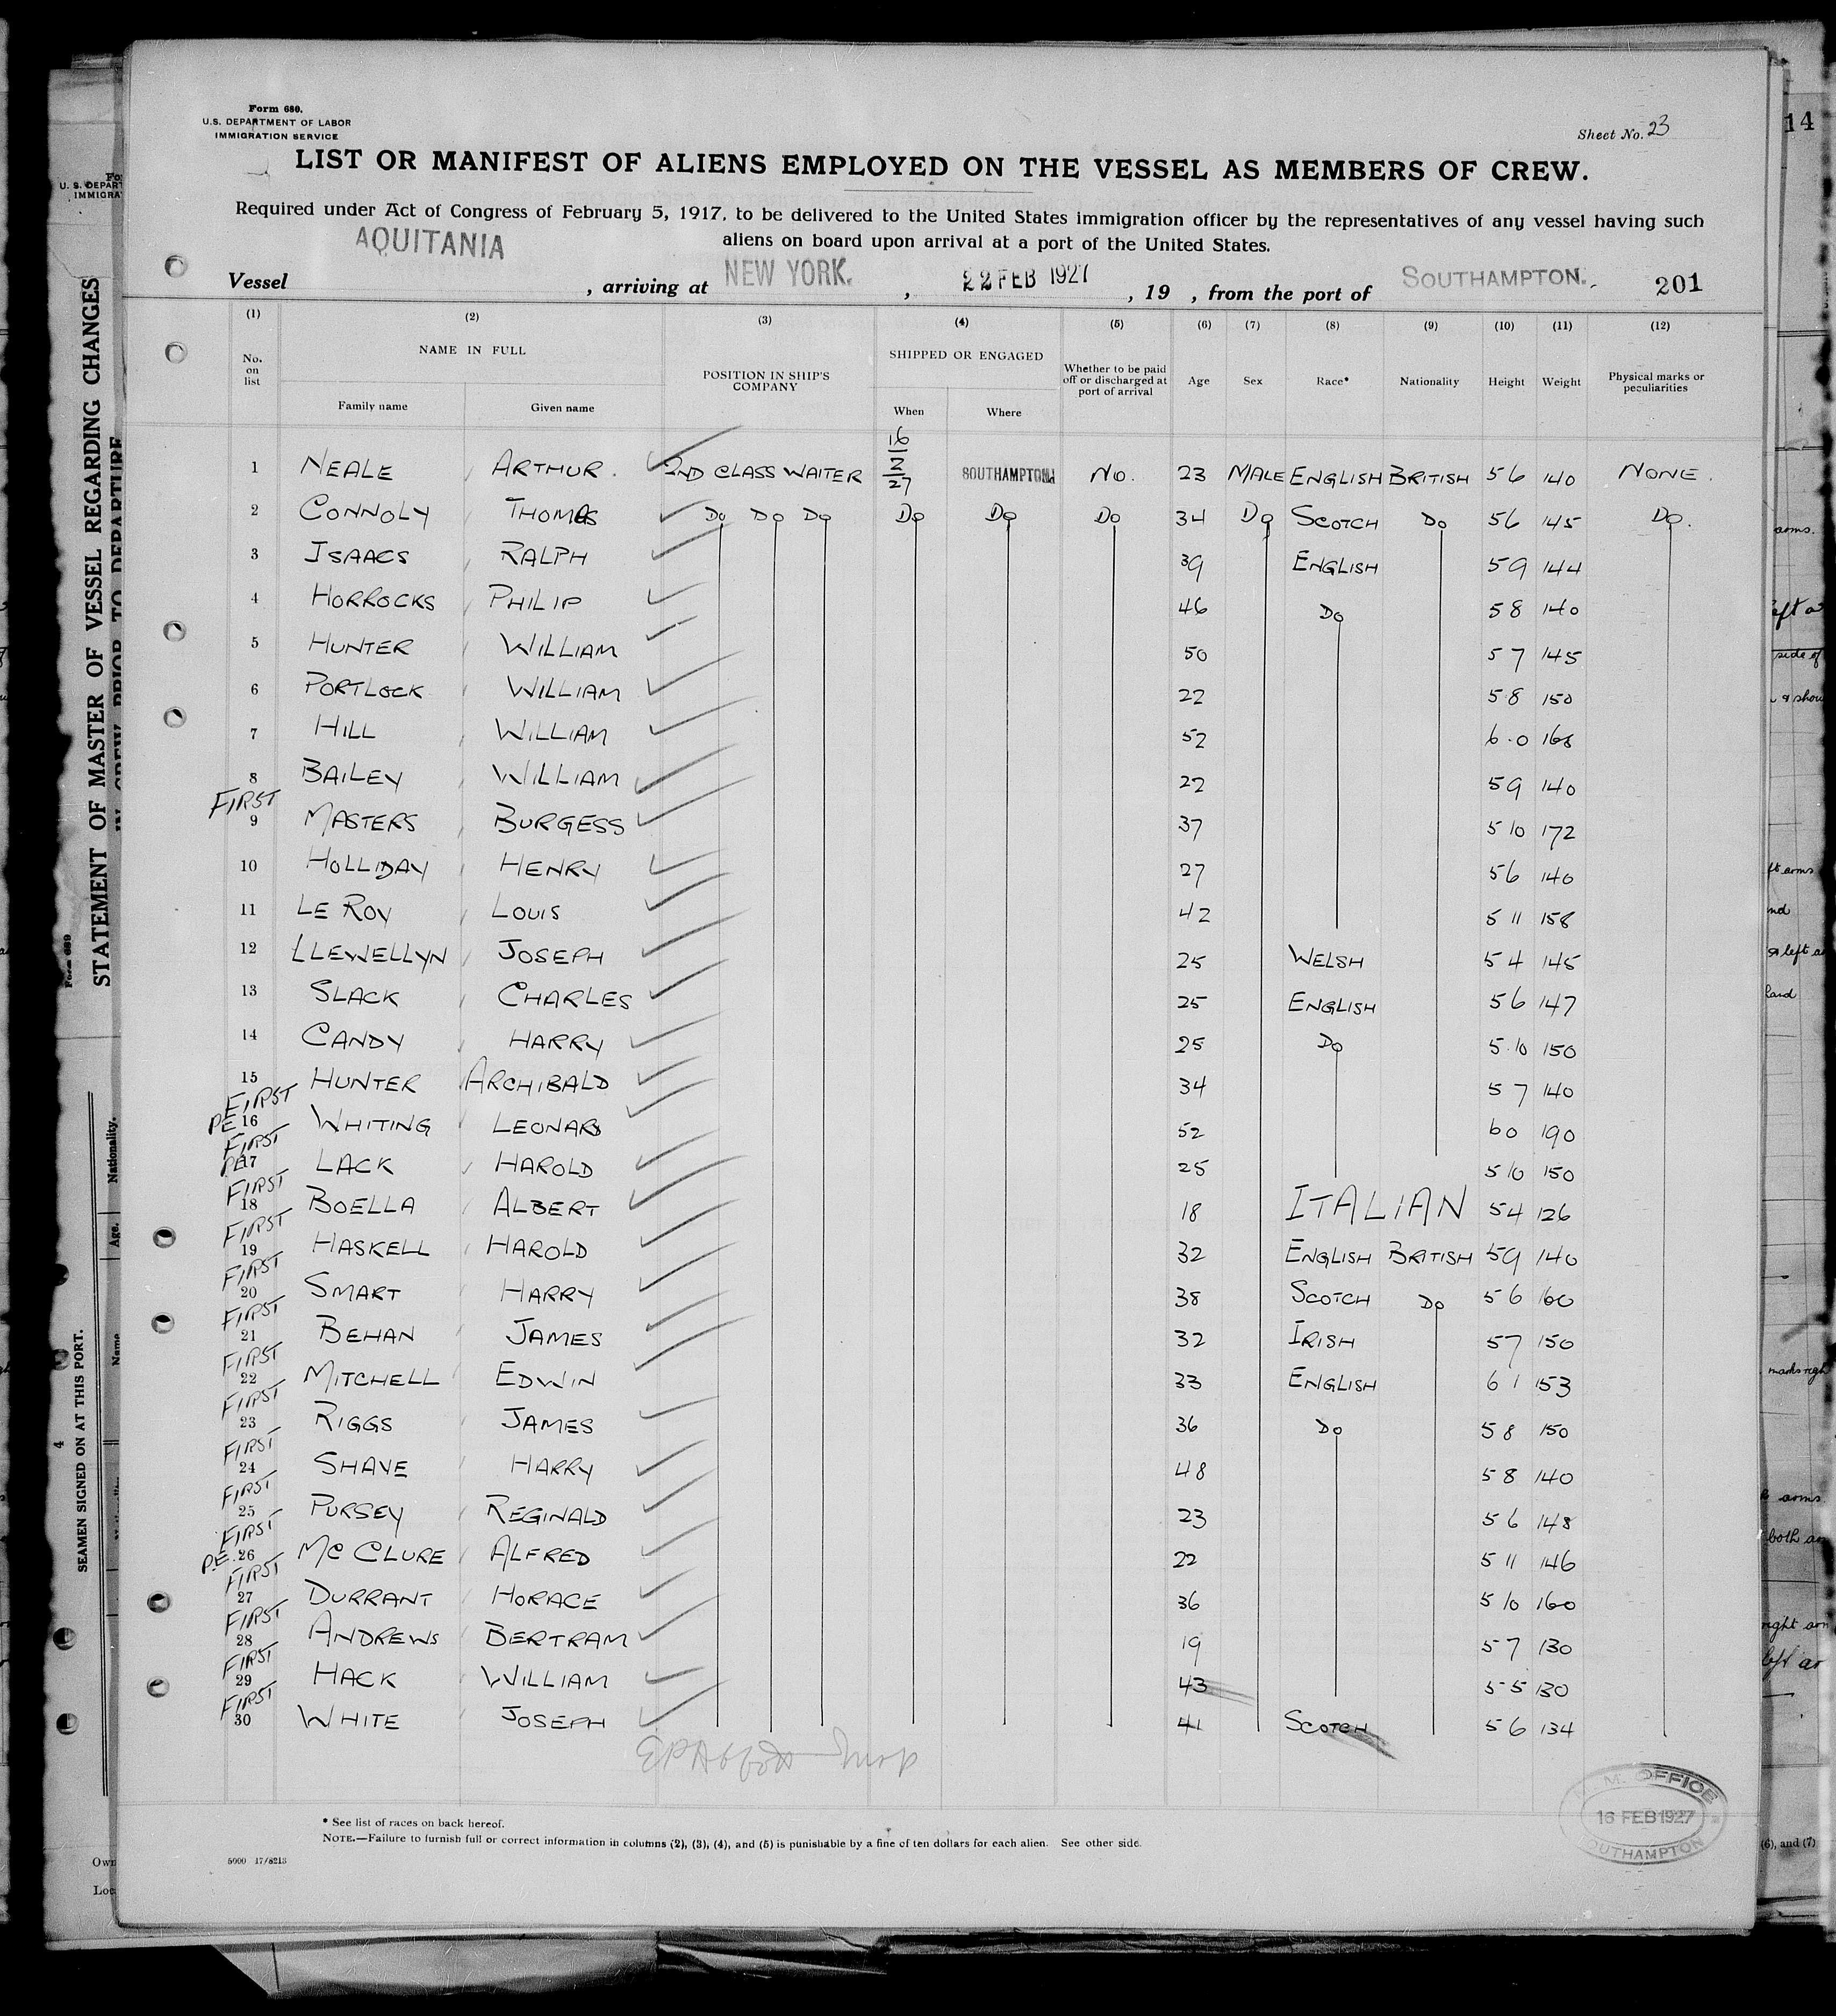 Form 680.
U.S. DEPARTMENT OF LABOR
IMMIGRATION SERVICE
Sheet No. 23
LIST OR MANIFEST OF ALIENS EMPLOYED ON THE VESSEL AS MEMBERS OF CREW.
Required under Act of Congress of February 5, 1917, to be delivered to the United States immigration officer by the representatives of any vessel having such
aliens on board upon arrival at a port of the United States.
Vessel AQUITANIA, arriving at NEW YORK., 22 FEB 1927, 19 , from the port of SOUTHAMPTON. 201
(1) (2) (3) (4) (5) (6) (7) (8) (9) (10) (11) (12)
No. on list NAME IN FULL POSITION IN SHIP'S COMPANY SHIPPED OR ENGAGED Whether to be paid off or discharged at port of arrival Age Sex Race* Nationality Height Weight Physical marks or peculiarities
Family name Given name When Where
1 NEALE ARTHUR. 2ND CLASS WAITER 16/2/27 SOUTHAMPTON No. 23 MALE ENGLISH BRITISH 5 6 140 NONE.
2 CONNOLY THOMAS Do Do Do Do Do Do 34 Do SCOTCH Do 5 6 145 Do.
3 ISAACS RALPH 39 ENGLISH 5 9 144
4 HORROCKS PHILIP 46 Do 5 8 140
5 HUNTER WILLIAM 50 5 7 145
6 PORTLOCK WILLIAM 22 5 8 150
7 HILL WILLIAM 52 6.0 168
8 BAILEY WILLIAM 22 5 9 140
FIRST
9 MASTERS BURGESS 37 5 10 172
10 HOLLIDAY HENRY 27 5 6 140
11 LE ROY LOUIS 42 5 11 158
12 LLEWELLYN JOSEPH 25 WELSH 5 4 145
13 SLACK CHARLES 25 ENGLISH 5 6 147
14 CANDY HARRY 25 Do 5.10 150
15 HUNTER ARCHIBALD 34 5 7 140
FIRST
PE 16 WHITING LEONARD 52 6 0 190
FIRST
PE 17 LACK HAROLD 25 5 10 150
FIRST
18 BOELLA ALBERT 18 ITALIAN 5 4 126
FIRST
19 HASKELL HAROLD 32 ENGLISH BRITISH 5 9 140
FIRST
20 SMART HARRY 38 SCOTCH Do 5 6 160
FIRST
21 BEHAN JAMES 32 IRISH 5 7 150
FIRST
22 MITCHELL EDWIN 33 ENGLISH 6 1 153
FIRST
23 RIGGS JAMES 36 Do 5 8 150
FIRST
24 SHAVE HARRY 48 5 8 140
FIRST
25 PURSEY REGINALD 23 5 6 148
FIRST
P.E. 26 MCCLURE ALFRED 22 5 11 146
FIRST
27 DURRANT HORACE 36 5 10 160
FIRST
28 ANDREWS BERTRAM 19 5 7 130
FIRST
29 HACK WILLIAM 43 5 5 130
FIRST
30 WHITE JOSEPH 41 SCOTCH 5 6 134
OFFICE
16 FEB 1927
SOUTHAMPTON
* See list of races on back hereof.
NOTE.—Failure to furnish full or correct information in columns (2), (3), (4), and (5) is punishable by a fine of ten dollars for each alien. See other side.
5000 17/8213
STATEMENT OF MASTER OF VESSEL REGARDING CHANGES
IN CREW PRIOR TO DEPARTURE
Form 689
SEAMEN SIGNED ON AT THIS PORT.
4
Nationality.
Age.
Name
U. S. DEPART
IMMIGRA
14
arms.
side of
left a
hand
both
right arm
(6), and (7)